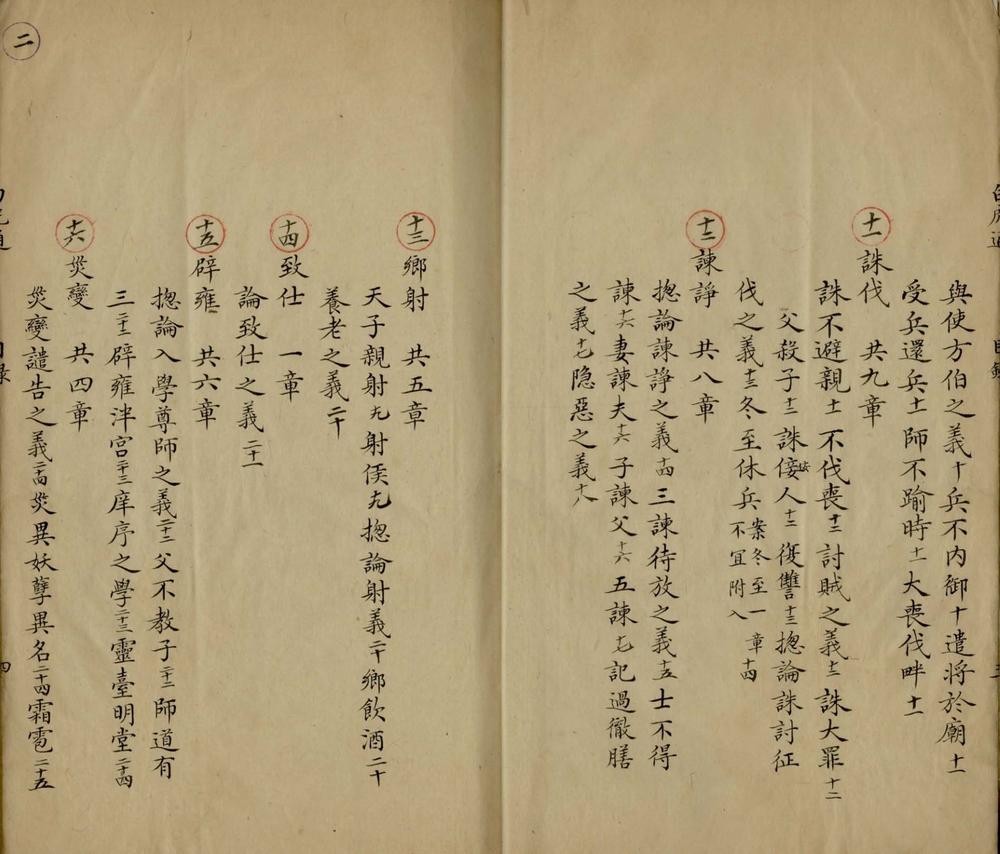 與使方伯之義十兵不内御十遣將於廟十一
受兵還兵十一師不踰時十一大喪伐畔十一
十一誅伐　共九章
誅不避親十一不伐喪十二討賊之義十二誅大罪十二
父殺子十二誅佞人十二復讐十三揔論誅討征
伐之義十三冬至休兵案冬至一章不宜附入十四
十二諫諍　共八章
揔論諫諍之義十四三諫待放之義十五士不得
諫十六妻諫夫十六子諫父十六五諫十七記過徹膳
之義十七隐惡之義十八
十三鄉射　共五章
天子親射十九射侯十九揔論射義二十鄉飲酒二十
養老之義二十
十四致仕　一章
論致仕之義二十一
十五辟雍　共六章
揔論入學尊師之義二十二父不教子二十二師道有
三二十二辟雍泮宮二十三庠序之學二十三靈臺明堂二十四
十六災變　共四章
災變譴告之義二十四災異妖孽異名二十四霜雹二十五
目録
四
二